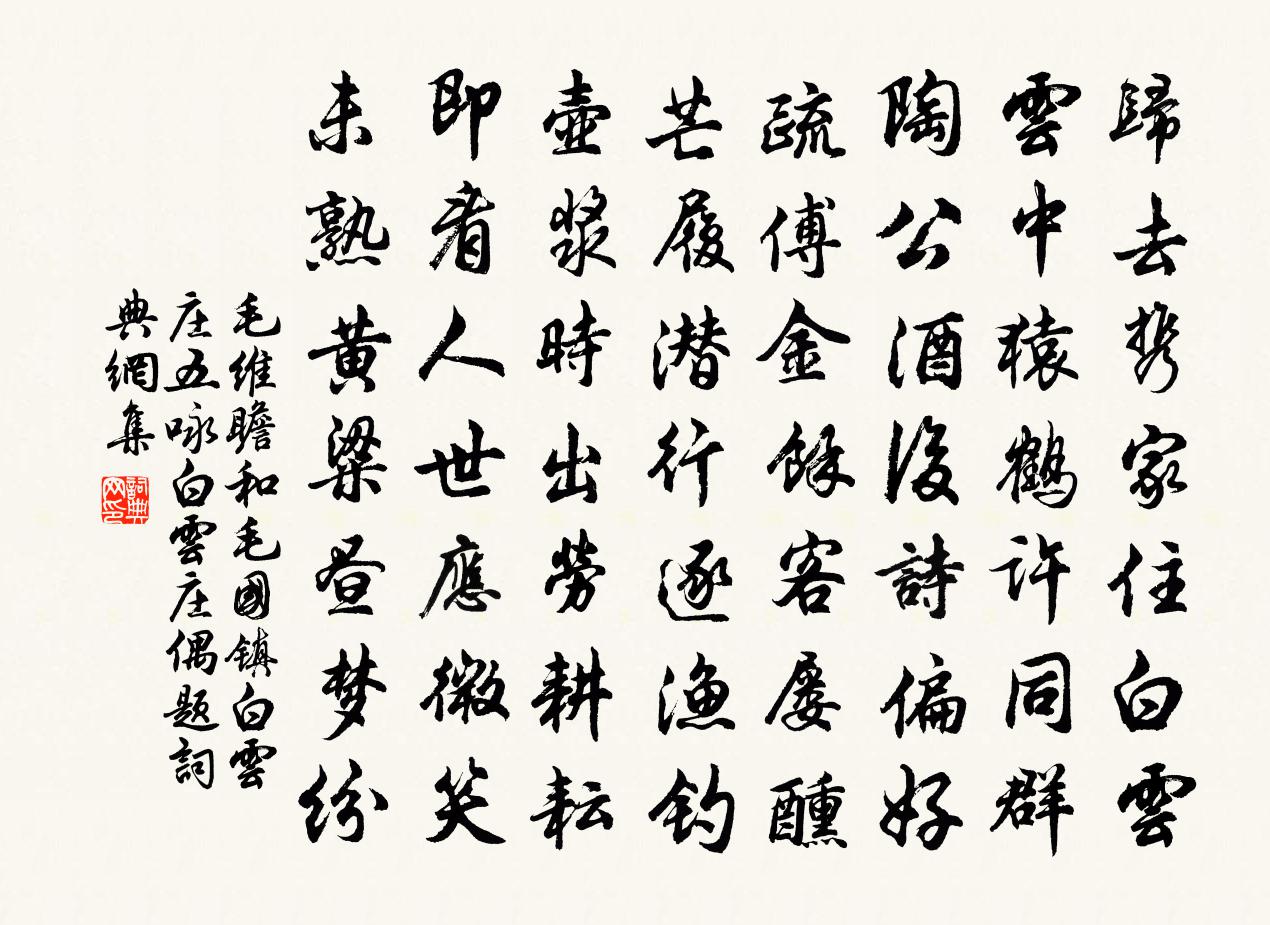 歸去携家住白雲
雲中猿鶴許同群
陶公酒後詩偏好
疏傅金餘客屡醺
芒履潜行逐漁钓
壺漿時出勞耕耘
即看人世應微笑
未熟黄粱昼梦纷
毛維瞻和毛國镇白雲
庄五咏白雲庄偶题詞
典網集
詞典网印